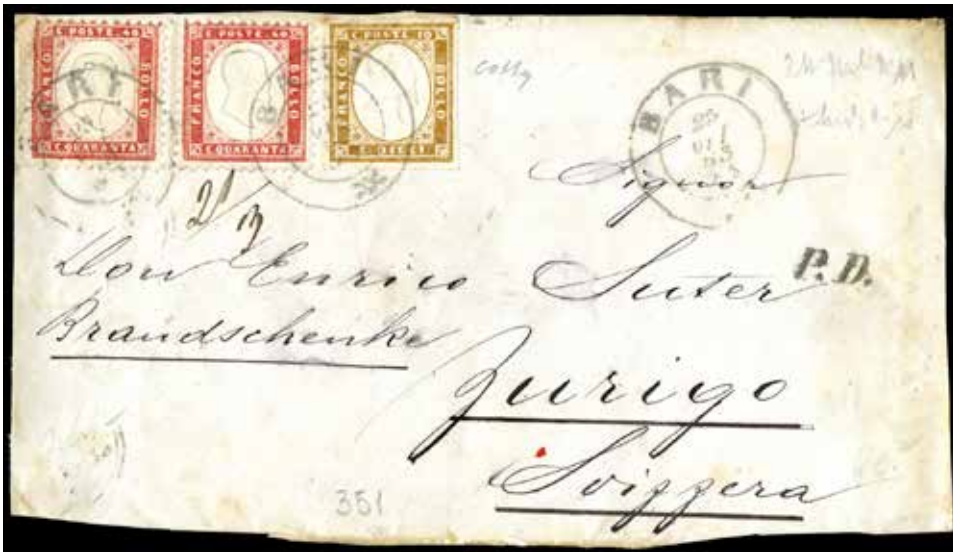 C. POSTE. 40
FRANCO
BOLLO
C. QUARANTA
C. POSTE. 40
FRANCO
BOLLO
C. QUARANTA
C. POSTE. 10
FRANCO
BOLLO
C. DIECI
BARI
BARI
25
Signor
Don Enrico Suter
P. D.
Brandschenke
Zurigo
Svizzera
351